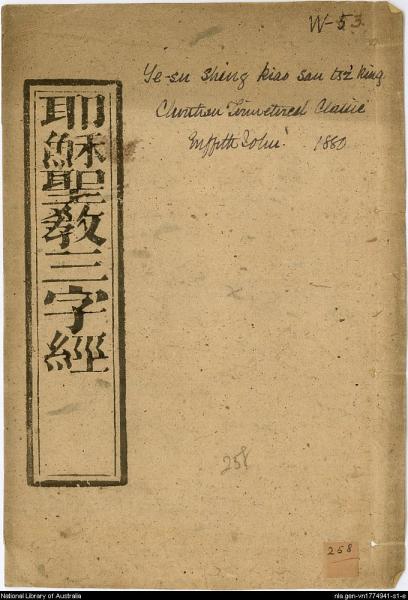 W-53
Ye-su Sheng kiao san tsz king
Christian Trimetrical Classic
Griffith John. 1880
耶穌聖教三字經
258
258
National Library of Australia
nla.gen-vn1774941-s1-e